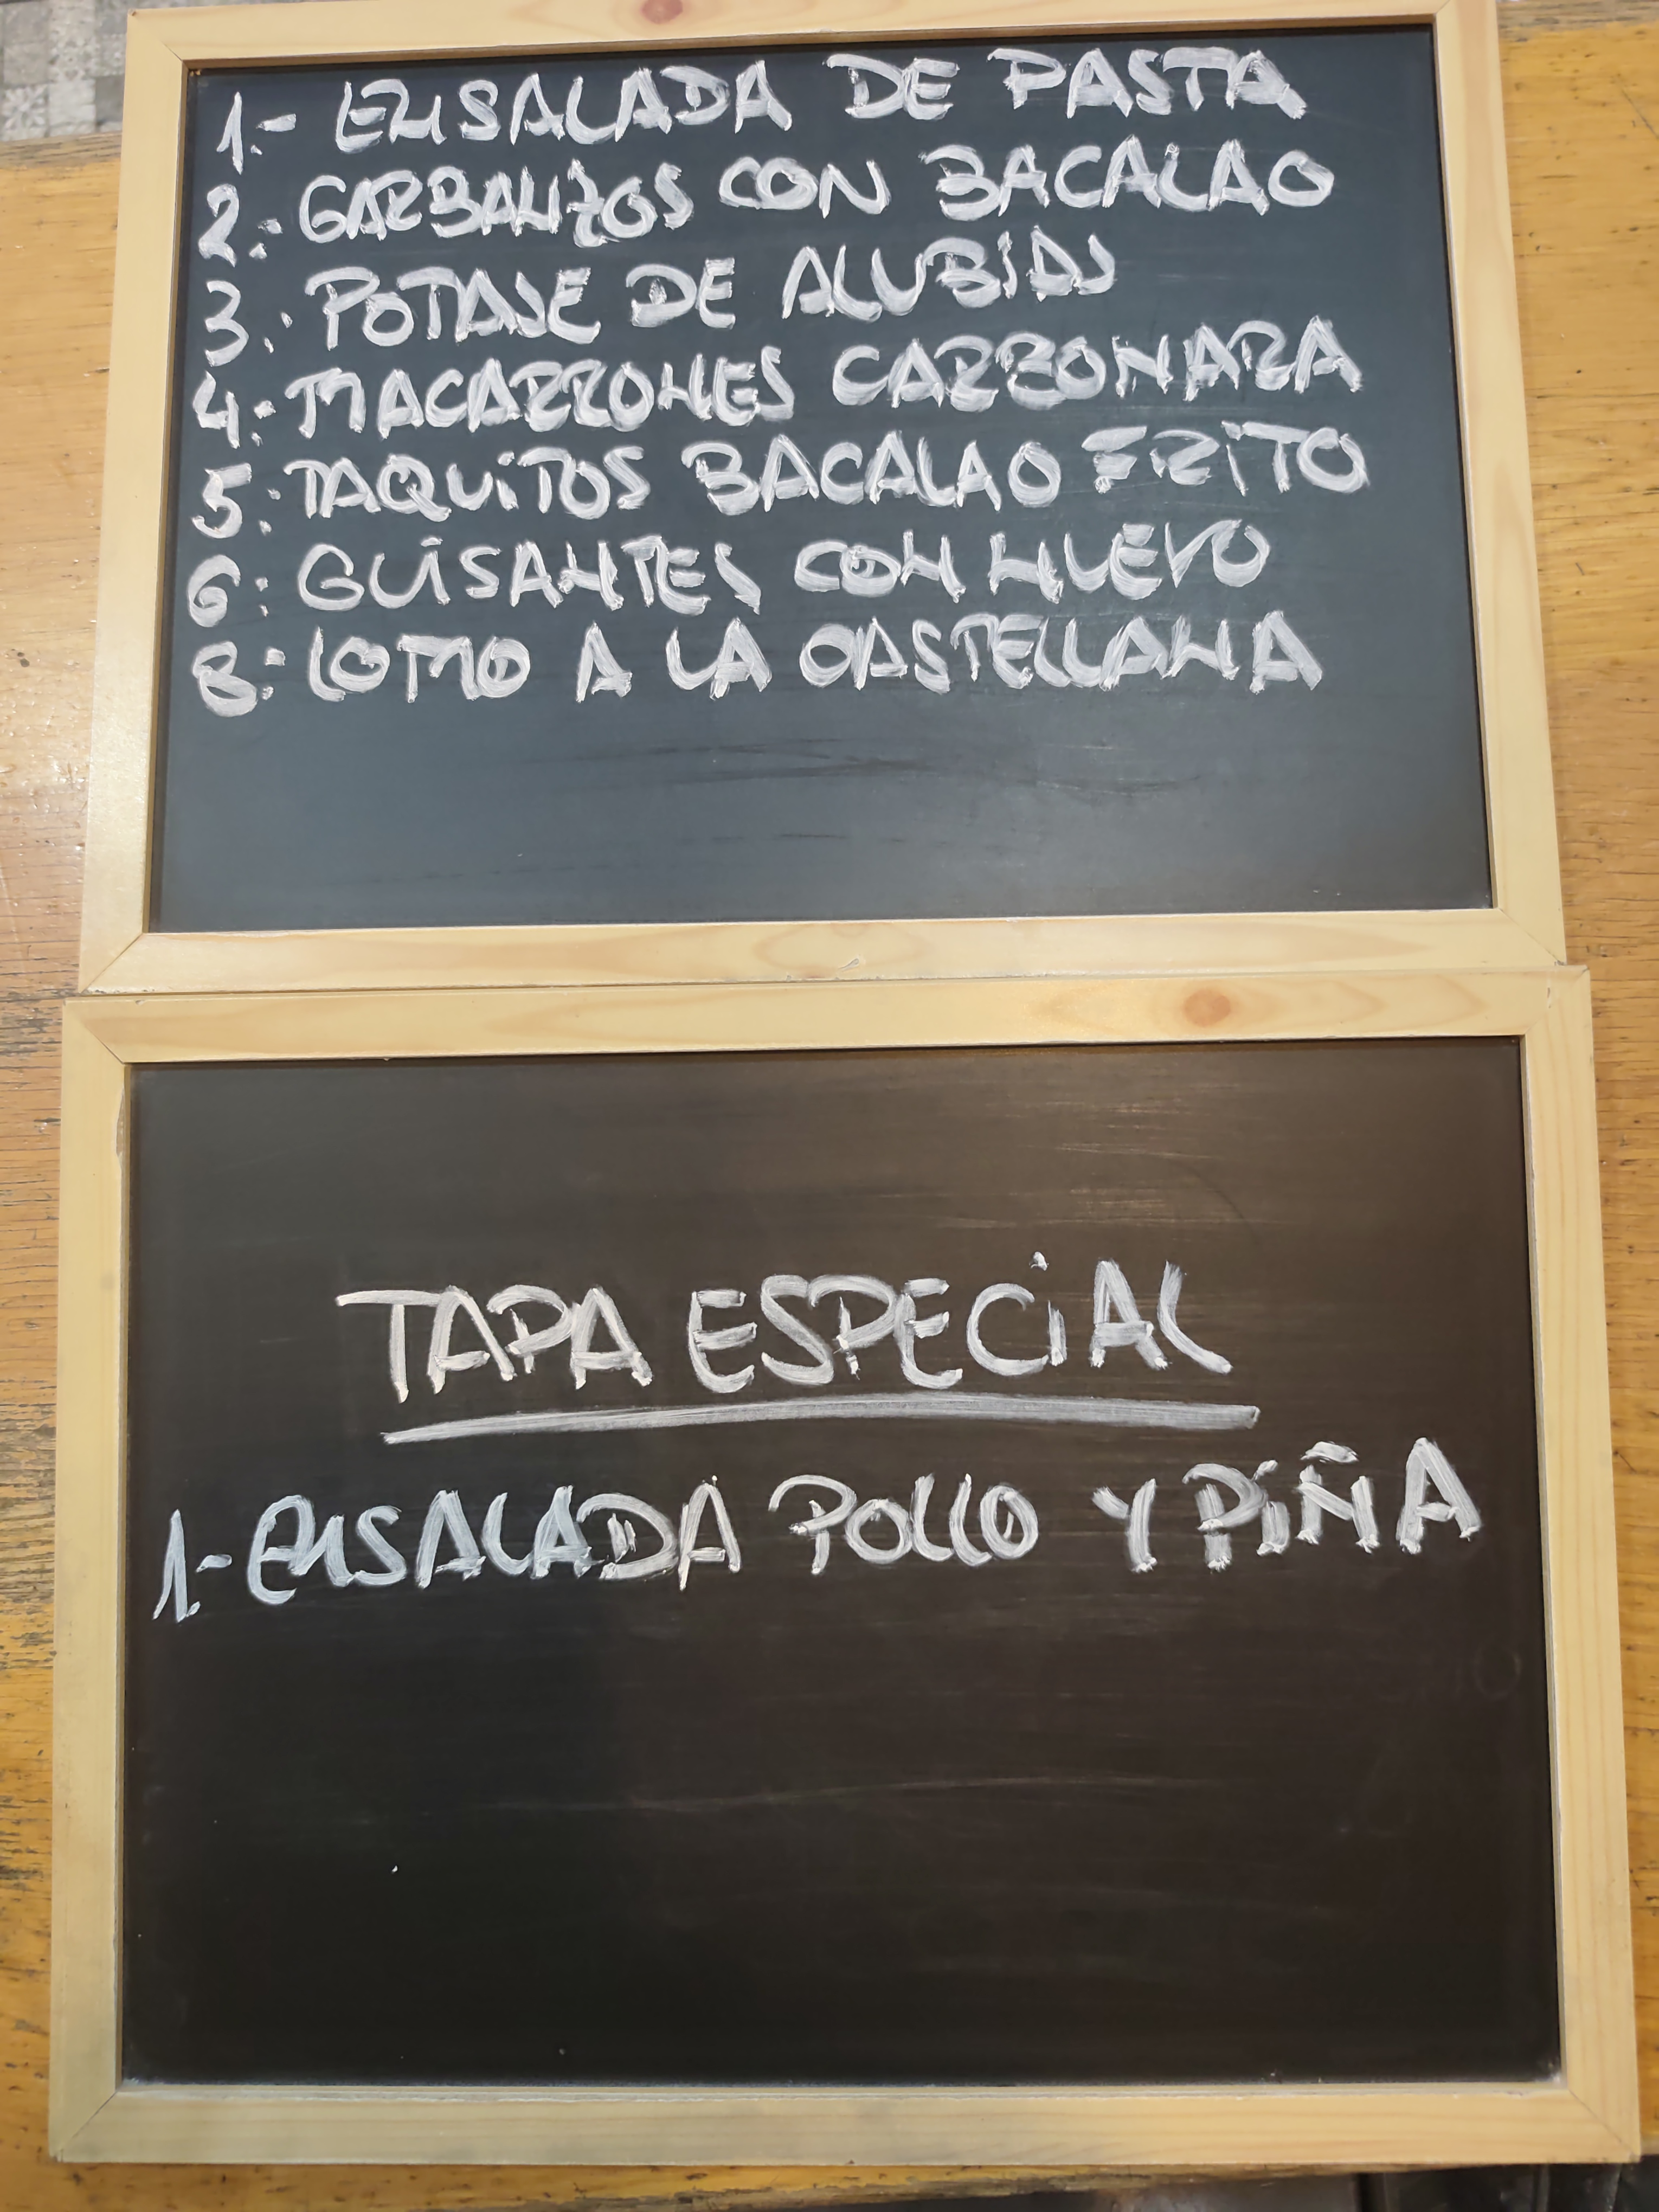 1.- ENSALADA DE PASTA
2.- GARBANZOS CON BACALAO
3.- POTAJE DE ALUBIAS
4.- MACARRONES CARBONARA
5.- TAQUITOS BACALAO FRITO
6.- GUISANTES CON HUEVO
8.- LOMO A LA CASTELLANA
TAPA ESPECIAL
1.- ENSALADA POLLO Y PIÑA